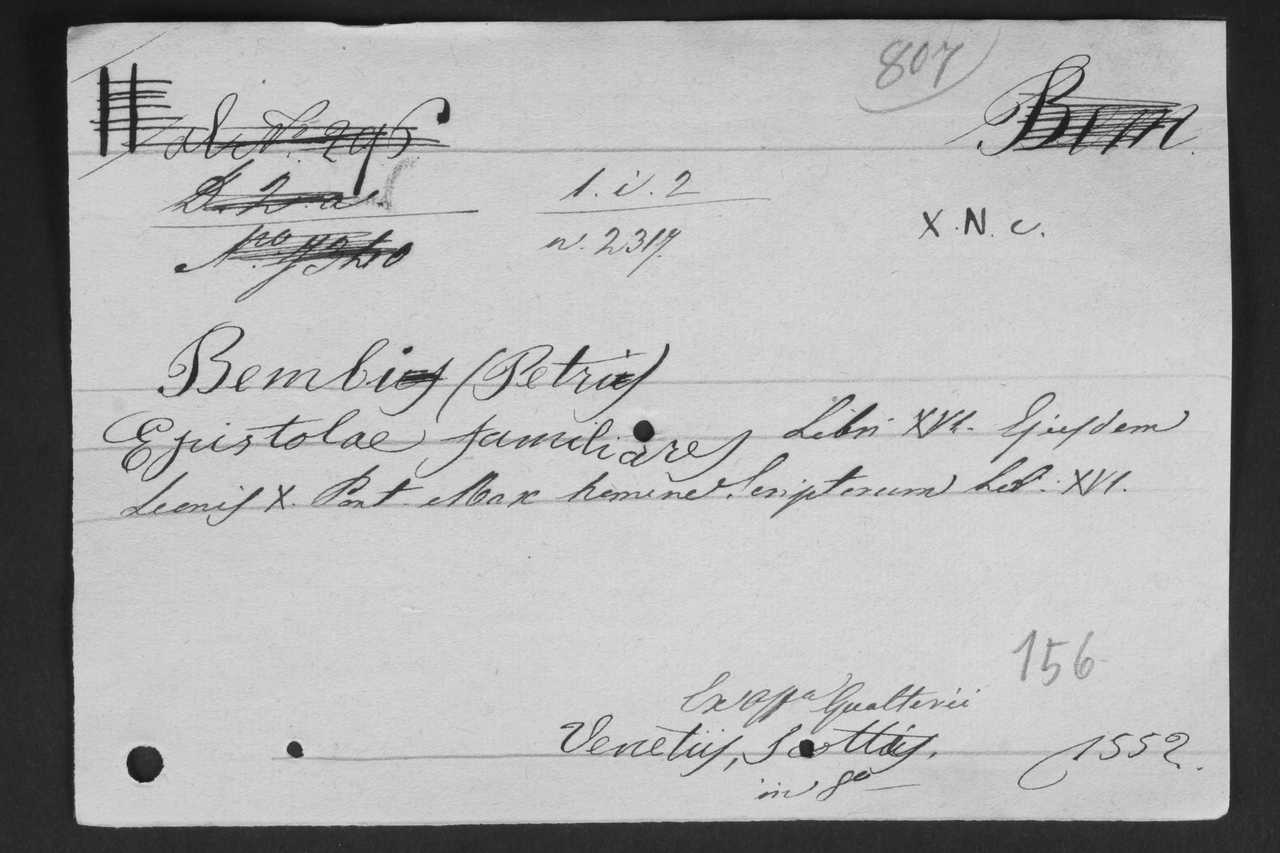 807
Bem.
1. i. 2
n. 2317.
X. N. c.
Bembi (Petri)
Epistolae familiares Libri XVI. Ejusdem
Leonis X. Pont. Max nomine Scriptarum Lib: XVI.
156
Gualterii
Venetiis, Scottus. 1552.
in 8o